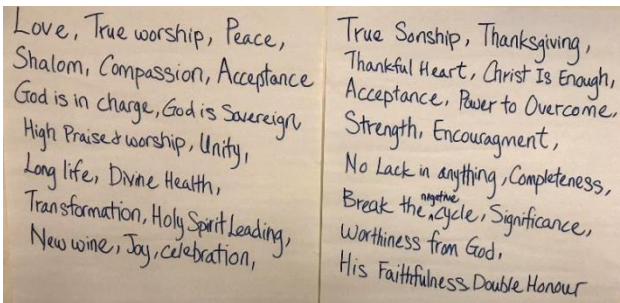 Love, True worship, Peace,
Shalom, Compassion, Acceptance
God is in charge, God is Sovereign
High Praise & worship, Unity,
Long life, Divine Health,
Transformation, Holy Spirit Leading,
New wine, Joy, celebration,
True Sonship, Thanksgiving,
Thankful Heart, Christ Is Enough,
Acceptance, Power to Overcome,
Strength, Encouragment,
No Lack in anything, Completeness,
Break the negetive cycle, Significance,
Worthiness from God,
His Faithfulness Double Honour